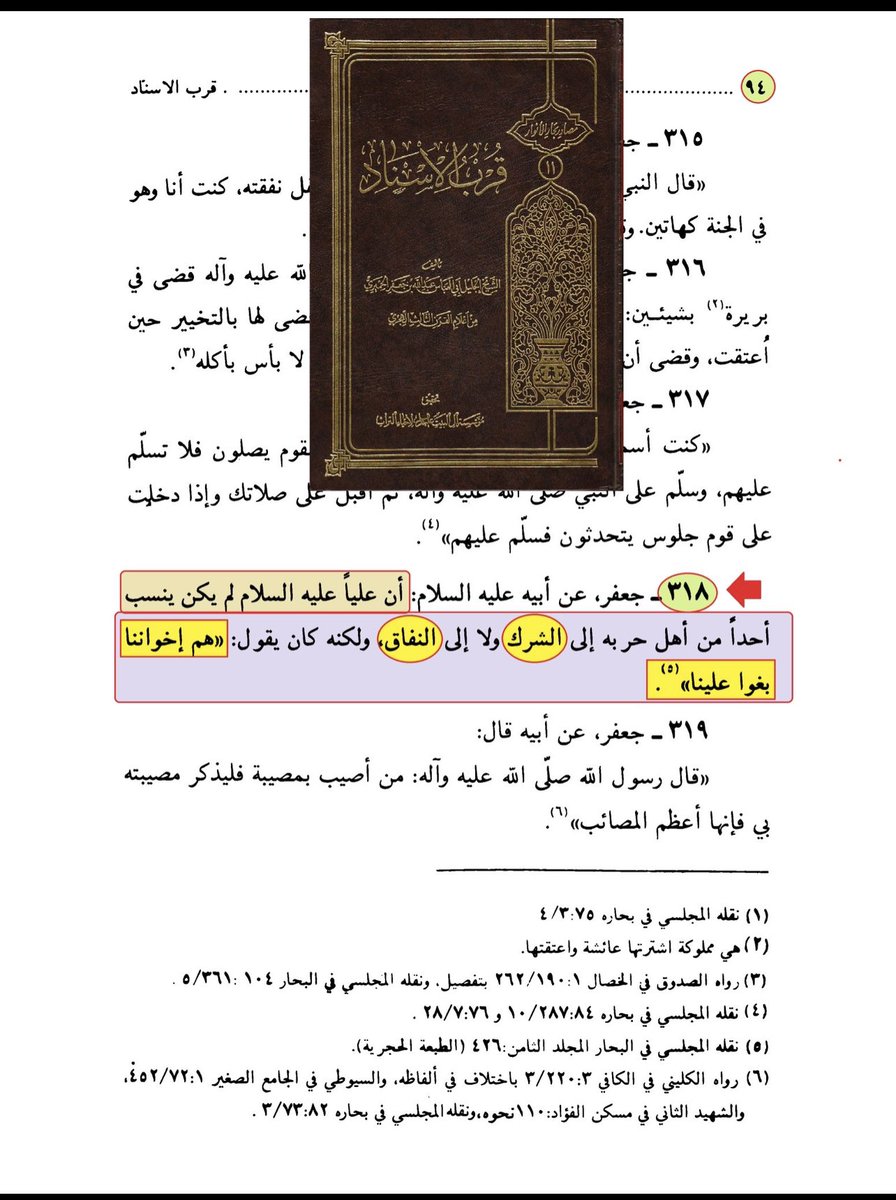 ٩٤ ........ قرب الاسناد
٣١٥ ـ
«قال النبي نفقته، كنت أنا وهو
في الجنة كهاتين.
٣١٦ ـ الله عليه وآله قضى في
بريرة(٢) بشيئين: لها بالتخيير حين
أُعتقت، وقضى أن لا بأس بأكله(٣).
٣١٧ ـ
«كنت يصلون فلا تسلّم
عليهم، وسلّم على النبي صلّى الله عليه وآله، ثم أقبل على صلاتك وإذا دخلت
على قوم جلوس يتحدثون فسلّم عليهم»(٤).
مصادر بحار الأنوار
١١
قرب الإسناد
تأليف
الشيخ الجليل أبي العباس عبد الله بن جعفر الحميري
من أعلام القرن الثالث الهجري
تحقيق
مؤسسة آل البيت عليهم السلام لإحياء التراث
٣١٨ ـ جعفر، عن أبيه عليه السلام: أن علياً عليه السلام لم يكن ينسب
أحداً من أهل حربه إلى الشرك ولا إلى النفاق، ولكنه كان يقول: «هم إخواننا
بغوا علينا»(٥).
٣١٩ ـ جعفر، عن أبيه قال:
«قال رسول الله صلّى الله عليه وآله: من أصيب بمصيبة فليذكر مصيبته
بي فإنها أعظم المصائب»(٦).
(١) نقله المجلسي في بحاره ٧٥:٤/٣
(٢) هي مملوكة اشترتها عائشة واعتقتها.
(٣) رواه الصدوق في الخصال ١:٢٦٢/١٩٠ بتفصيل، ونقله المجلسي في البحار ١٠٤:٥/٣٦١ .
(٤) نقله المجلسي في بحاره ٨٤:١٠/٢٨٧ و ٧٦:٢٨/٧ .
(٥) نقله المجلسي في البحار المجلد الثامن:٤٢٦ (الطبعة الحجرية).
(٦) رواه الكليني في الكافي ٣:٣/٢٢٠ باختلاف في ألفاظه، والسيوطي في الجامع الصغير ١:٤٥٢/٧٢،
والشهيد الثاني في مسكن الفؤاد:١١٠نحوه،ونقله المجلسي في بحاره ٨٢:٣/٧٣ .